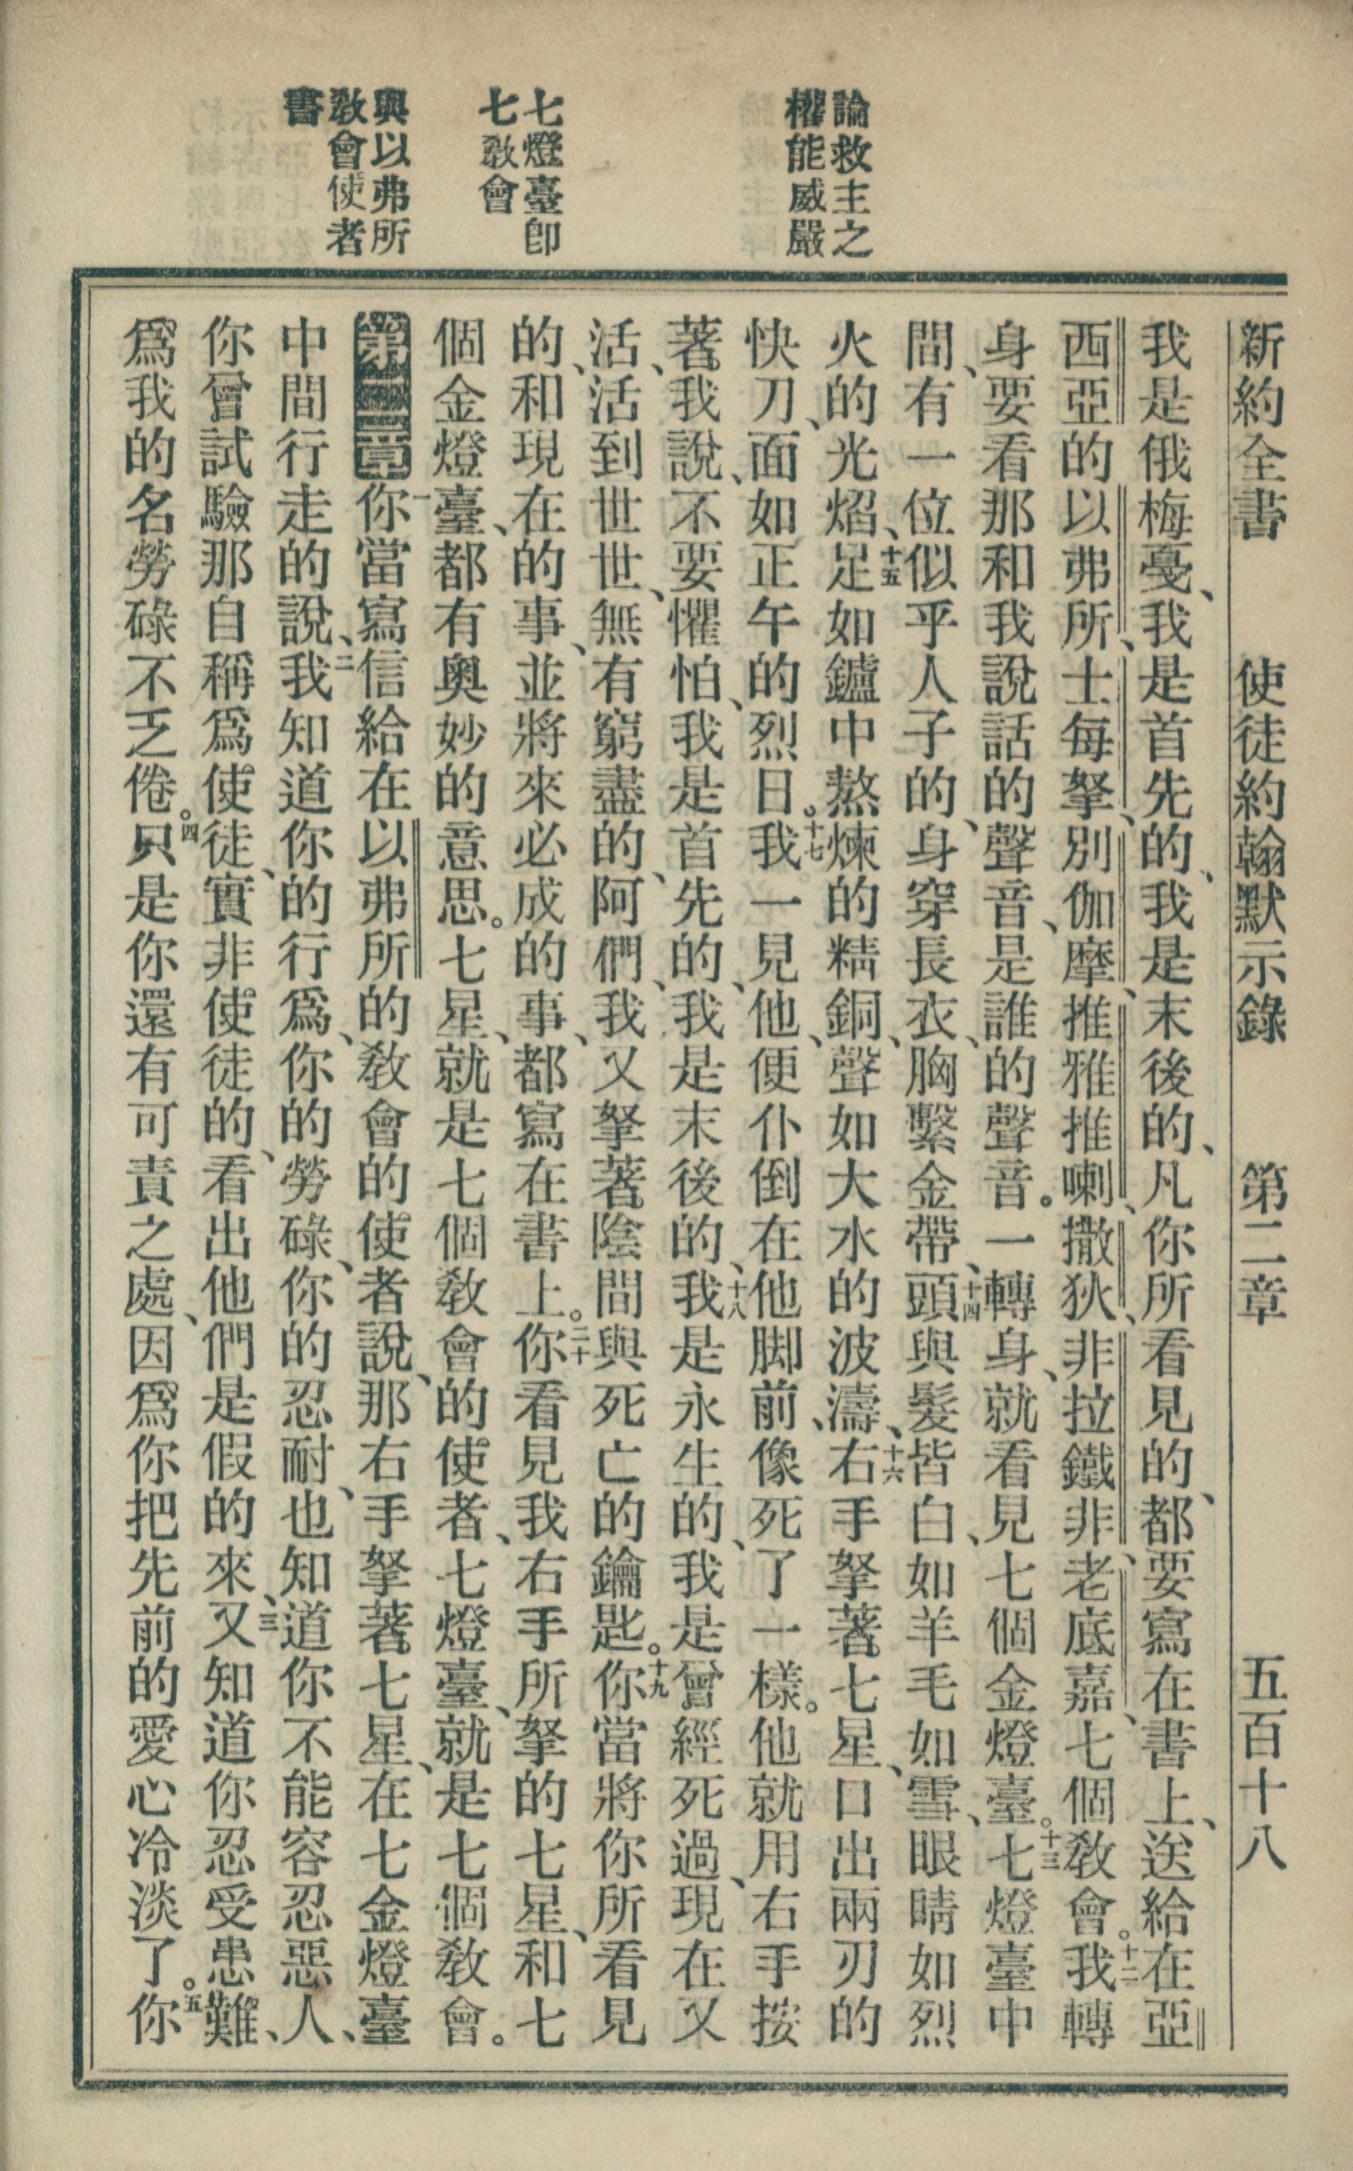 新約全書　使徒約翰默示錄　第二章　五百十八
論救主之
權能威嚴
七燈臺卽
七敎會
與以弗所
敎會使者
書
我是俄梅戞、我是首先的、我是末後的、凡你所看見的、都要寫在書上、送給在亞
西亞的以弗所、士每拏、別伽摩、推雅推喇、撒狄、非拉鐵非、老底嘉、七個敎會。十二我轉
身要看那和我說話的聲音、是誰的聲音。一轉身、就看見七個金燈臺。十三七燈臺中
間、有一位似乎人子的、身穿長衣、胸繫金帶、十四頭與髮皆白、如羊毛如雪、眼睛如烈
火的光焰、十五足如鑪中熬煉的精銅、聲如大水的波濤、十六右手拏著七星、口出兩刃的
快刀、面如正午的烈日。十七我一見他、便仆倒在他脚前、像死了一樣。他就用右手按
著我說、不要懼怕、我是首先的、我是末後的、十八我是永生的、我是曾經死過、現在又
活、活到世世、無有窮盡的、阿們、我又拏著陰間與死亡的鑰匙。十九你當將你所看見
的、和現在的事、並將來必成的事、都寫在書上。二十你看見我右手所拏的七星、和七
個金燈臺、都有奧妙的意思。七星、就是七個敎會的使者、七燈臺、就是七個敎會。
第二章一你當寫信給在以弗所的敎會的使者說、那右手拏著七星、在七金燈臺
中間行走的說、二我知道你的行爲、你的勞碌、你的忍耐、也知道你不能容忍惡人、
你曾試驗那自稱爲使徒、實非使徒的、看出他們是假的來、三又知道你忍受患難、
爲我的名勞碌不乏倦。四只是你還有可責之處、因爲你把先前的愛心冷淡了。五你